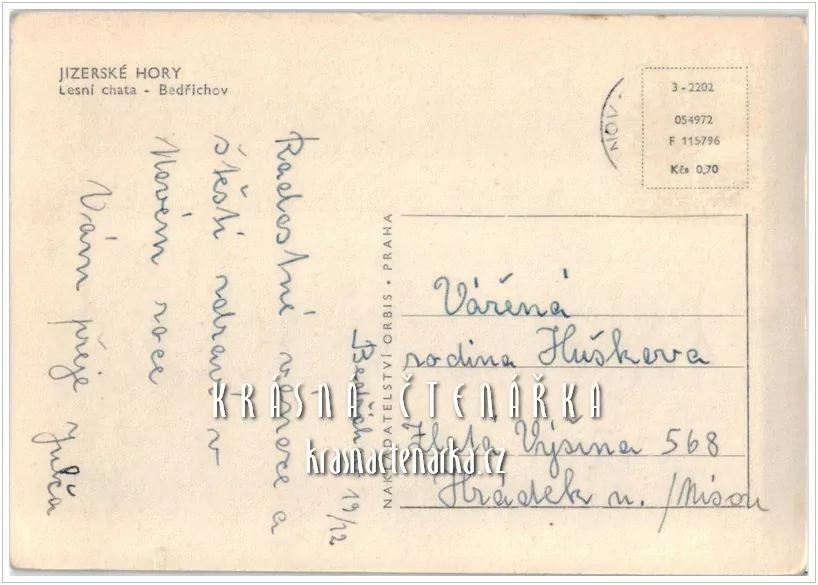 JIZERSKÉ HORY
Lesní chata - Bedřichov
3 - 2202
054972
F 115796
Kčs 0,70
NAKLADATELSTVÍ ORBIS • PRAHA
19/12
Radostné vánoce a
štěstí zdraví v
Novém roce
Vám přeje
Vážená
rodina Huškova
Zlatá Výšina 568
Hrádek n./Nisou
KRÁSNÁ ČTENÁŘKA
krasnactenarka.cz